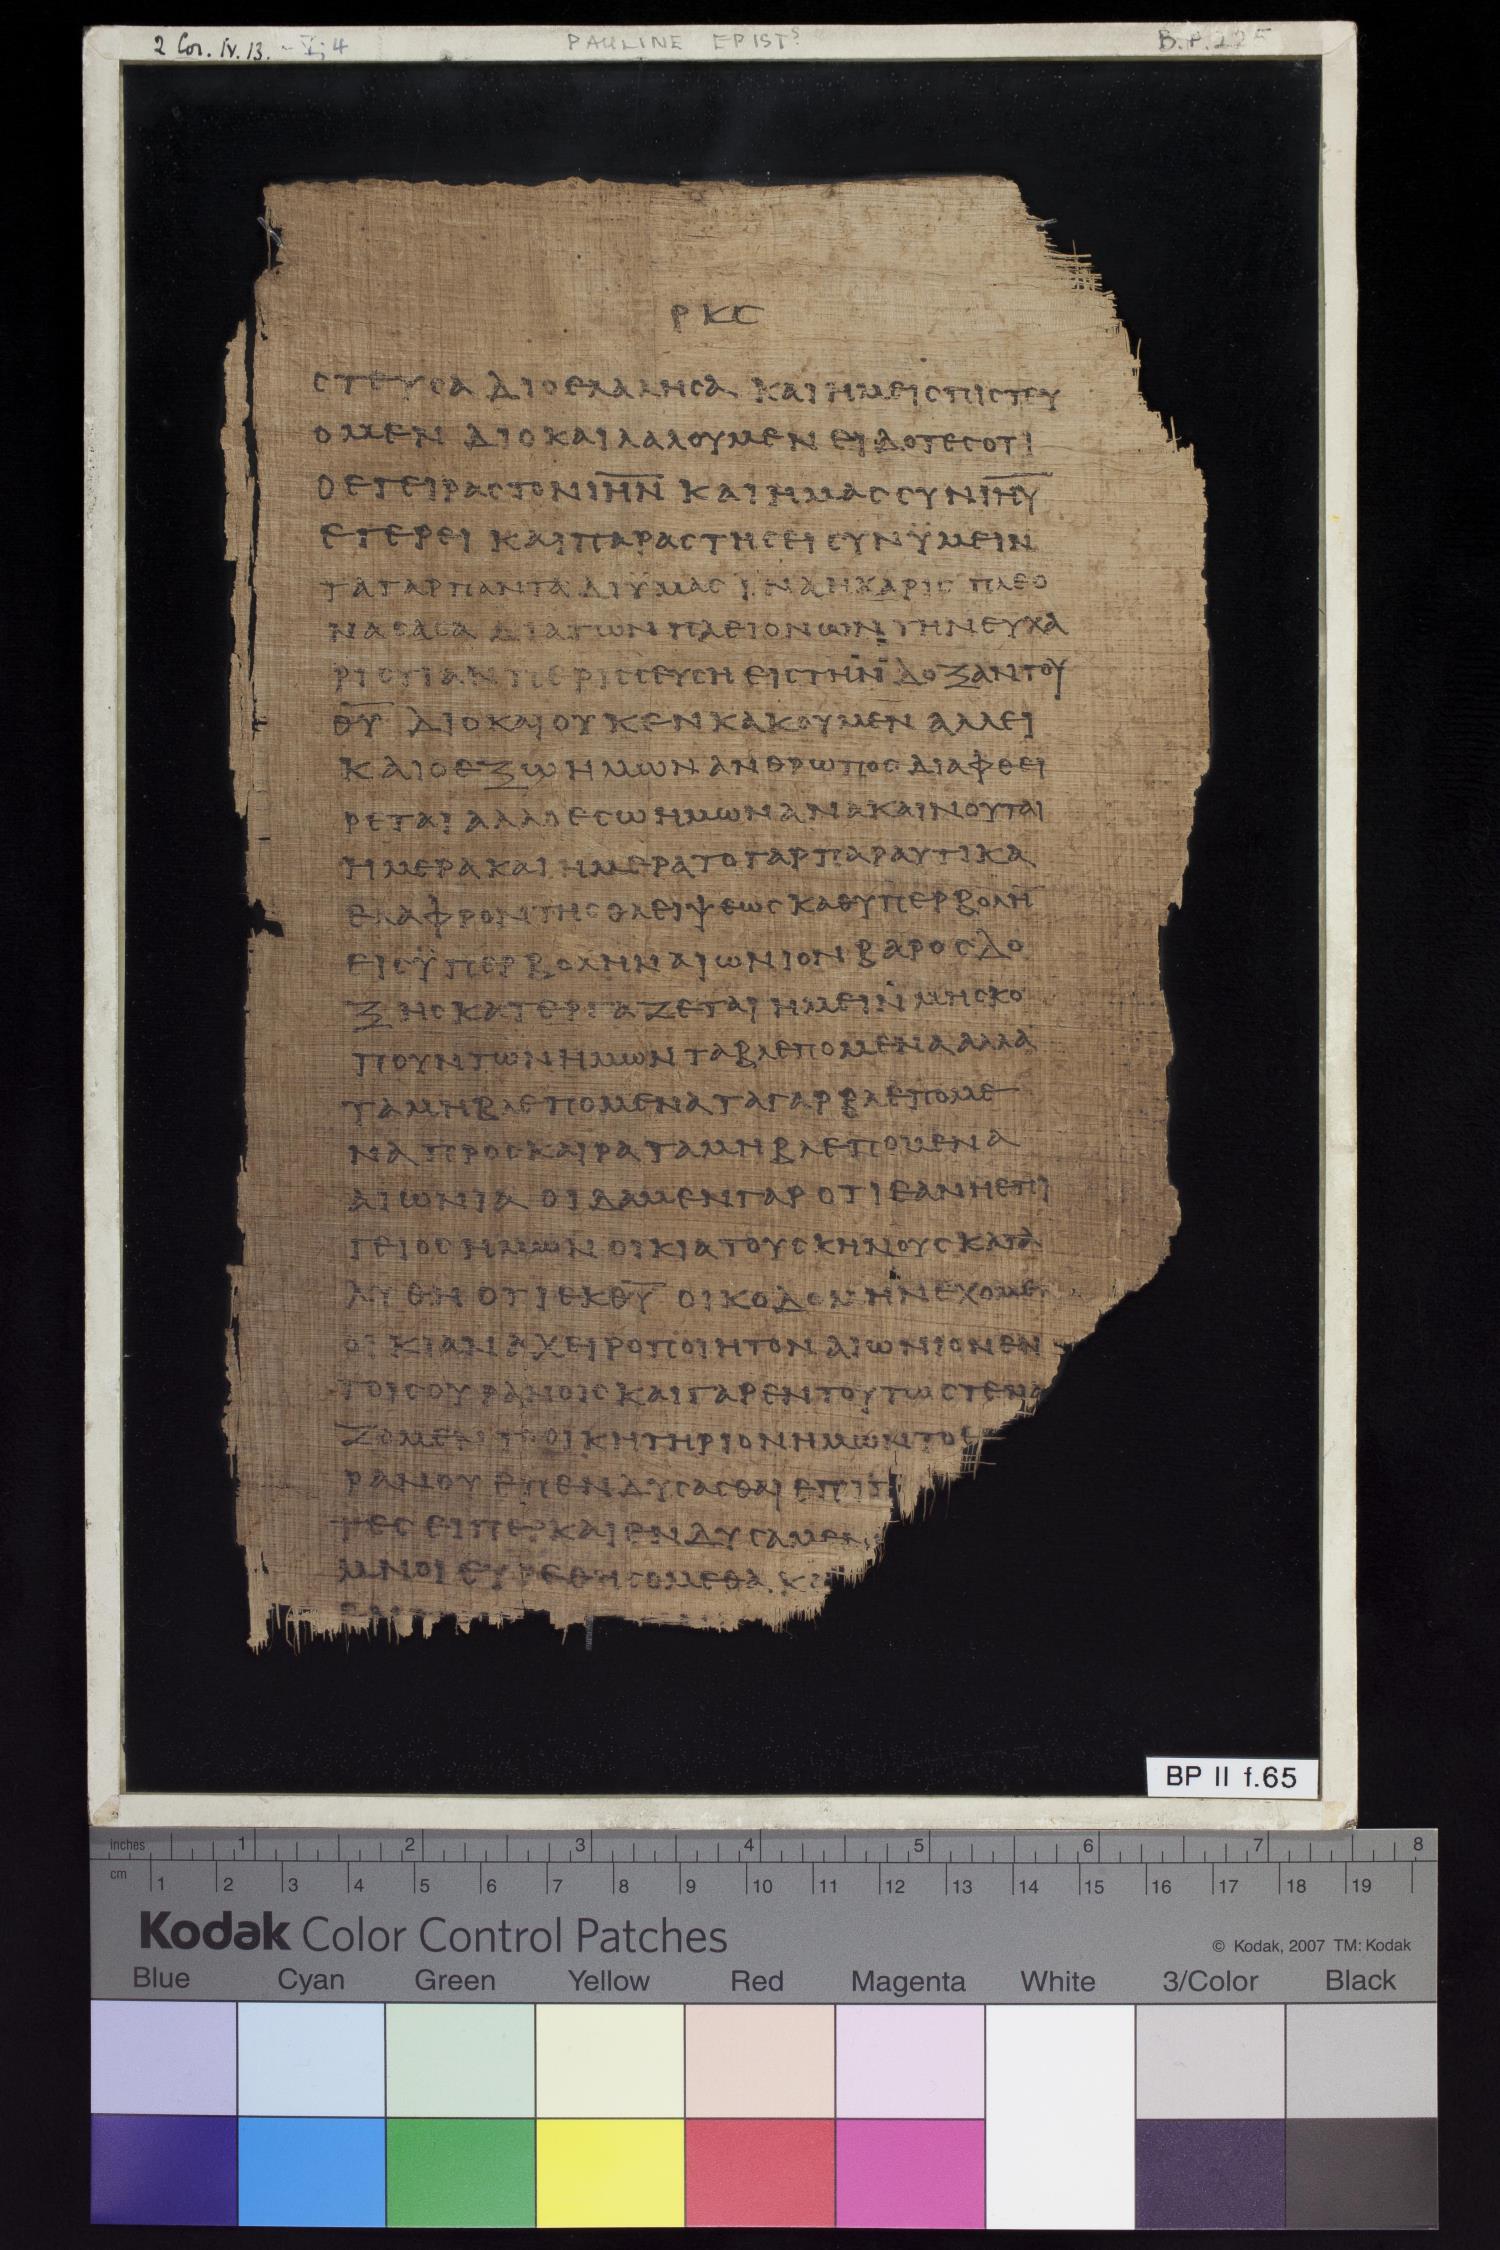 2 Cor. IV. 13. - V, 4 PAULINE EPISTS. B.P. 225
ΡΚϚ
ϹΤΕΥϹΑ ΔΙΟΕΛΑΛΗϹΑ ΚΑΙΗΜΕΙϹΠΙϹΤΕΥ
ΟΜΕΝ ΔΙΟΚΑΙΛΑΛΟΥΜΕΝ ΕΙΔΟΤΕϹΟΤΙ
ΟΕΓΕΙΡΑϹΤΟΝΙ̅Η̅Ν̅ ΚΑΙΗΜΑϹϹΥΝΙ̅Η̅Υ̅
ΕΓΕΡΕΙ ΚΑΙΠΑΡΑϹΤΗϹΕΙϹΥΝΫΜΕΙΝ
ΤΑΓΑΡΠΑΝΤΑΔΙΫΜΑϹΙΝΑΗΧΑΡΙϹ ΠΛΕΟ
ΝΑϹΑϹΑ ΔΙΑΤΩΝΠΛΕΙΟΝΩΝΤΗΝΕΥΧΑ
ΡΙϹΤΙΑΝΠΕΡΙϹϹΕΥϹΗΕΙϹΤΗΝΔΟΞΑΝΤΟΥ
Θ̅Υ̅ ΔΙΟΚΑΙΟΥΚΕΝΚΑΚΟΥΜΕΝ ΑΛΛΕΙ
ΚΑΙΟΕΞΩΗΜΩΝΑΝΘΡΩΠΟϹΔΙΑΦΘΕΙ
ΡΕΤΑΙ ΑΛΛΟΕϹΩΗΜΩΝΑΝΑΚΑΙΝΟΥΤΑΙ
ΗΜΕΡΑΚΑΙΗΜΕΡΑΤΟΓΑΡΠΑΡΑΥΤΙΚΑ
ΕΛΑΦΡΟΝΤΗϹΘΛΕΙΨΕΩϹΚΑΘΥΠΕΡΒΟΛΗ̅
ΕΙϹΫΠΕΡΒΟΛΗΝΑΙΩΝΙΟΝΒΑΡΟϹΔΟ
ΞΗϹΚΑΤΕΡΓΑΖΕΤΑΙΗΜΕΙΝ ΜΗϹΚΟ
ΠΟΥΝΤΩΝΗΜΩΝΤΑΒΛΕΠΟΜΕΝΑΑΛΛΑ
ΤΑΜΗΒΛΕΠΟΜΕΝΑΤΑΓΑΡΒΛΕΠΟΜΕ
ΝΑΠΡΟϹΚΑΙΡΑΤΑΜΗΒΛΕΠΟΜΕΝΑ
ΑΙΩΝΙΑ ΟΙΔΑΜΕΝΓΑΡΟΤΙΕΑΝΗΕΠΙ
ΓΕΙΟϹΗΜΩΝΟΙΚΙΑΤΟΥϹΚΗΝΟΥϹΚΑΤΑ
ΛΥΘΗ ΟΤΙΕΚΘ̅Υ̅ ΟΙΚΟΔΟΜΗΝΕΧΟΜΕ
ΟΙΚΙΑΝΑΧΕΙΡΟΠΟΙΗΤΟΝΑΙΩΝΙΟΝΕΝ
ΤΟΙϹΟΥΡΑΝΟΙϹΚΑΙΓΑΡΕΝΤΟΥΤΩϹΤΕΝΑ
ΖΟΜΕΝΤΟΟΙΚΗΤΗΡΙΟΝΗΜΩΝΤΟΕ
ΡΑΝΟΥΕΠΕΝΔΥϹΑϹΘΑΙΕΠΙΠ
ΤΕϹΕΙΠΕΡΚΑΙΕΝΔΥϹΑΜΕΝ
ΜΝΟΙΕΥΡΕΘΗϹΟΜΕΘΑ ΚΑ
BP II f.65
inches 1 2 3 4 5 6 7 8
cm 1 2 3 4 5 6 7 8 9 10 11 12 13 14 15 16 17 18 19
Kodak Color Control Patches
© Kodak, 2007 TM: Kodak
Blue Cyan Green Yellow Red Magenta White 3/Color Black